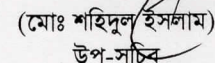 (মোঃ শহিদুল ইসলাম)
উপ-সচিব